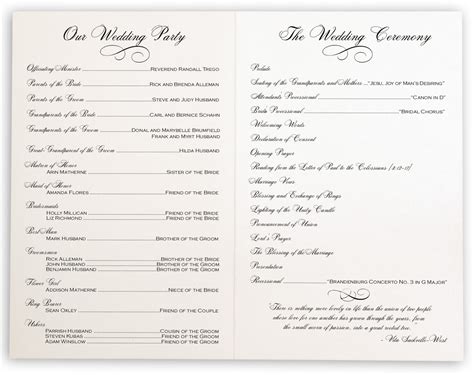 Our Wedding Party
Officiating Minister REVEREND RANDALL TREGO
Parents of the Bride RICK AND BRENDA ALLEMAN
Parents of the Groom STEVE AND JUDY HUSBAND
Grandparents of the Bride CARL AND BERNICE SCHAHN
Grandparents of the Groom DONAL AND MARYBELLE BRUMFIELD
FRANK AND MARY HUSBAND
Great-Grandparent of the Groom HILDA HUSBAND
Matron of Honor
ARIN MATHERNE SISTER OF THE BRIDE
Maid of Honor
AMANDA FLORES FRIEND OF THE BRIDE
Bridesmaids
HOLLY MILLICAN FRIEND OF THE BRIDE
LIZ RICHMOND FRIEND OF THE BRIDE
Best Man
MARK HUSBAND BROTHER OF THE GROOM
Groomsmen
RICK ALLEMAN BROTHER OF THE BRIDE
JOHN HUSBAND BROTHER OF THE GROOM
BENJAMIN HUSBAND BROTHER OF THE GROOM
Flower Girl
ADDISON MATHERNE NIECE OF THE BRIDE
Ring Bearer
SEAN OXLEY FRIEND OF THE COUPLE
Ushers
PARRISH HUSBAND COUSIN OF THE GROOM
STEVEN KUBAS FRIEND OF THE GROOM
ADAM WINSLOW FRIEND OF THE GROOM
The Wedding Ceremony
Prelude
Seating of the Grandparents and Mothers "JESU, JOY OF MAN'S DESIRING"
Attendants Processional "CANON IN D"
Bride Processional "BRIDAL CHORUS"
Welcoming Words
Declaration of Consent
Opening Prayer
Reading from the Letter of Paul to the Colossians (3:12-17)
Marriage Vows
Blessing and Exchange of Rings
Lighting of the Unity Candle
Pronouncement of Union
Lord's Prayer
The Blessing of the Marriage
Presentation
Recessional "BRANDENBURG CONCERTO NO. 3 IN G MAJOR"
There is nothing more lovely in life than the union of two people
whose love for one another has grown through the years,
from the small acorn of passion, into a great rooted tree.
- Vita Sackville-West